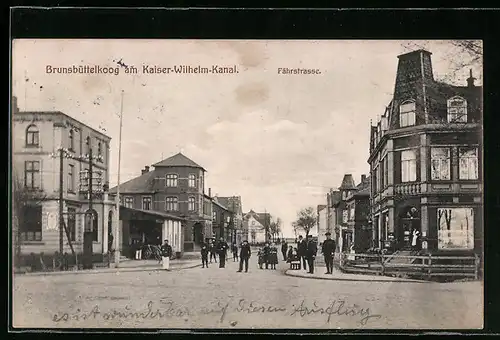 Brunsbüttelkoog am Kaiser-Wilhelm-Kanal. Fährstrasse.
es ist wunderbar auf diesen Ausflug